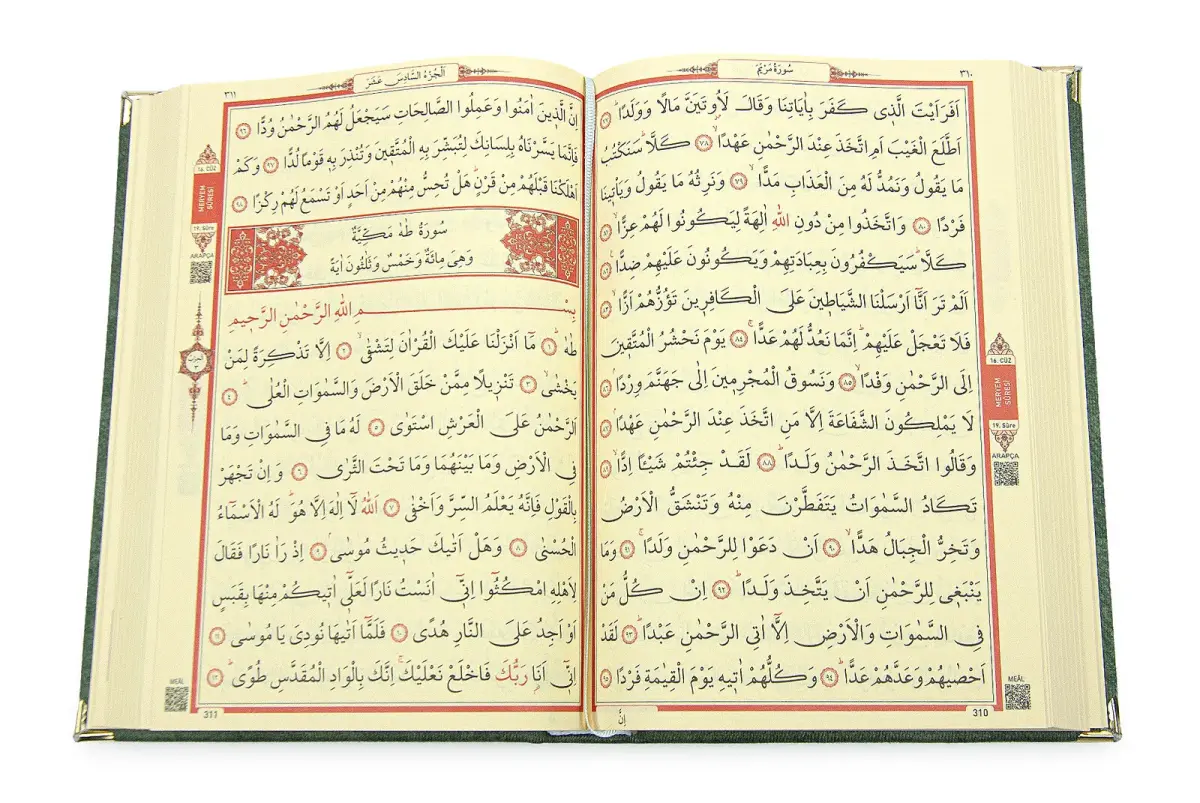 سُورَةُ مَرْيَمَ
٣١٠
اَفَرَاَيْتَ الَّذٖى كَفَرَ بِاٰيَاتِنَا وَقَالَ لَاُوتَيَنَّ مَالًا وَوَلَدًاؕ ٧٧
اَطَّلَعَ الْغَيْبَ اَمِ اتَّخَذَ عِنْدَ الرَّحْمٰنِ عَهْدًاۙ ٧٨ كَلَّاؕ سَنَكْتُبُ
مَا يَقُولُ وَنَمُدُّ لَهُ مِنَ الْعَذَابِ مَدًّاۙ ٧٩ وَنَرِثُهُ مَا يَقُولُ وَيَأْتٖينَا
فَرْدًا ٨٠ وَاتَّخَذُوا مِنْ دُونِ اللّٰهِ اٰلِهَةً لِيَكُونُوا لَهُمْ عِزًّاۙ ٨١
كَلَّاؕ سَيَكْفُرُونَ بِعِبَادَتِهِمْ وَيَكُونُونَ عَلَيْهِمْ ضِدًّا ٨٢
اَلَمْ تَرَ اَنَّٓا اَرْسَلْنَا الشَّيَاطٖينَ عَلَى الْكَافِرٖينَ تَؤُزُّهُمْ اَزًّاۙ ٨٣
فَلَا تَعْجَلْ عَلَيْهِمْؕ اِنَّمَا نَعُدُّ لَهُمْ عَدًّاۚ ٨٤ يَوْمَ نَحْشُرُ الْمُتَّقٖينَ
اِلَى الرَّحْمٰنِ وَفْدًاۙ ٨٥ وَنَسُوقُ الْمُجْرِمٖينَ اِلٰى جَهَنَّمَ وِرْدًاۘ ٨٦
لَا يَمْلِكُونَ الشَّفَاعَةَ اِلَّا مَنِ اتَّخَذَ عِنْدَ الرَّحْمٰنِ عَهْدًاۘ ٨٧
وَقَالُوا اتَّخَذَ الرَّحْمٰنُ وَلَدًاؕ ٨٨ لَقَدْ جِئْتُمْ شَيْـًٔا اِدًّاۙ ٨٩
تَكَادُ السَّمٰوَاتُ يَتَفَطَّرْنَ مِنْهُ وَتَنْشَقُّ الْاَرْضُ
وَتَخِرُّ الْجِبَالُ هَدًّاۙ ٩٠ اَنْ دَعَوْا لِلرَّحْمٰنِ وَلَدًاۚ ٩١ وَمَا
يَنْبَغٖى لِلرَّحْمٰنِ اَنْ يَتَّخِذَ وَلَدًاؕ ٩٢ اِنْ كُلُّ مَنْ
فِى السَّمٰوَاتِ وَالْاَرْضِ اِلَّٓا اٰتِى الرَّحْمٰنِ عَبْدًاؕ ٩٣ لَقَدْ
اَحْصٰيهُمْ وَعَدَّهُمْ عَدًّاؕ ٩٤ وَكُلُّهُمْ اٰتٖيهِ يَوْمَ الْقِيٰمَةِ فَرْدًا ٩٥
16. CÜZ
MERYEM
SÛRESİ
19. Sûre
ARAPÇA
MEÂL
310
اِنَّ
اَلْجُزْءُ السَّادِسَ عَشَرَ
٣١١
اِنَّ الَّذٖينَ اٰمَنُوا وَعَمِلُوا الصَّالِحَاتِ سَيَجْعَلُ لَهُمُ الرَّحْمٰنُ وُدًّا ٩٦
فَاِنَّمَا يَسَّرْنَاهُ بِلِسَانِكَ لِتُبَشِّرَ بِهِ الْمُتَّقٖينَ وَتُنْذِرَ بِهٖ قَوْمًا لُدًّا ٩٧ وَكَمْ
اَهْلَكْنَا قَبْلَهُمْ مِنْ قَرْنٍؕ هَلْ تُحِسُّ مِنْهُمْ مِنْ اَحَدٍ اَوْ تَسْمَعُ لَهُمْ رِكْزًا ٩٨
سُورَةُ طٰهٰ مَكِّيَّةٌ
وَهِىَ مِائَةٌ وَخَمْسٌ وَثَلٰثُونَ اٰيَةً
بِسْمِ اللّٰهِ الرَّحْمٰنِ الرَّحٖيمِ
طٰهٰۚ ١ مَٓا اَنْزَلْنَا عَلَيْكَ الْقُرْاٰنَ لِتَشْقٰىۙ ٢ اِلَّا تَذْكِرَةً لِمَنْ
يَخْشٰىۙ ٣ تَنْزٖيلًا مِمَّنْ خَلَقَ الْاَرْضَ وَالسَّمٰوَاتِ الْعُلٰىؕ ٤
اَلرَّحْمٰنُ عَلَى الْعَرْشِ اسْتَوٰى ٥ لَهُ مَا فِى السَّمٰوَاتِ وَمَا
فِى الْاَرْضِ وَمَا بَيْنَهُمَا وَمَا تَحْتَ الثَّرٰى ٦ وَاِنْ تَجْهَرْ
بِالْقَوْلِ فَاِنَّهُ يَعْلَمُ السِّرَّ وَاَخْفٰى ٧ اَللّٰهُ لَٓا اِلٰهَ اِلَّا هُوَؕ لَهُ الْاَسْمَٓاءُ
الْحُسْنٰى ٨ وَهَلْ اَتٰيكَ حَدٖيثُ مُوسٰىۘ ٩ اِذْ رَاٰ نَارًا فَقَالَ
لِاَهْلِهِ امْكُثُٓوا اِنّٖٓى اٰنَسْتُ نَارًا لَعَلّٖٓى اٰتٖيكُمْ مِنْهَا بِقَبَسٍ
اَوْ اَجِدُ عَلَى النَّارِ هُدًى ١٠ فَلَمَّٓا اَتٰيهَا نُودِىَ يَا مُوسٰىؕ ١١
اِنّٖٓى اَنَا رَبُّكَ فَاخْلَعْ نَعْلَيْكَۚ اِنَّكَ بِالْوَادِ الْمُقَدَّسِ طُوًىؕ ١٢
16. CÜZ
MERYEM
SÛRESİ
19. Sûre
ARAPÇA
MEÂL
311